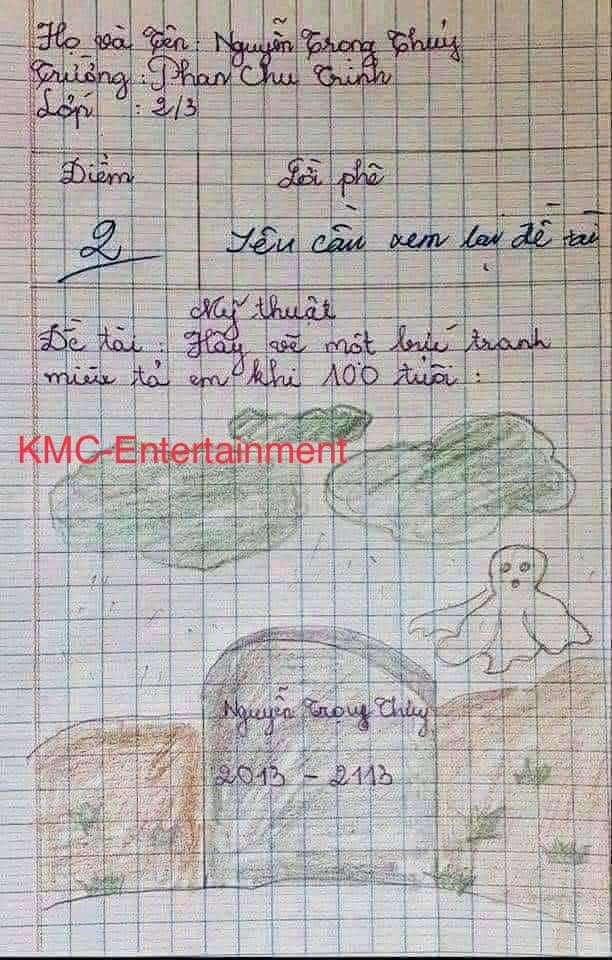 Họ và Tên: Nguyễn Trọng Thủy
Trường: Phan Chu Trinh
Lớp : 2/3
Điểm
Lời phê
2
Yêu cầu xem lại đề tài
Mỹ thuật
Đề tài : Hãy vẽ một bức tranh
miêu tả em khi 100 tuổi :
KMC-Entertainment
Nguyễn Trọng Thủy
2013 - 2113